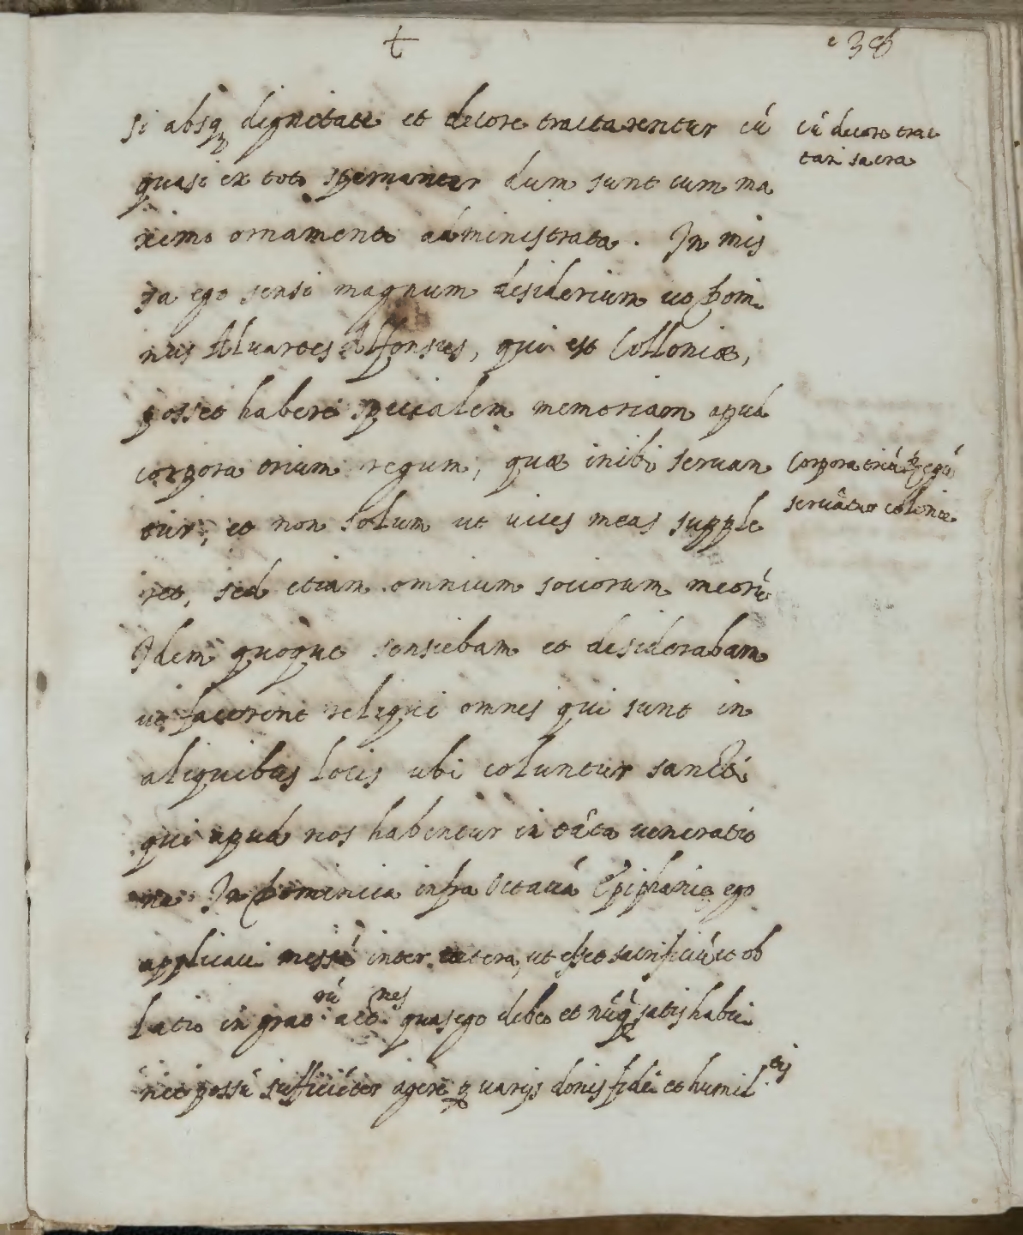 +
38
si absq dignitate et decore tractarentur cū
quasi ex toto spernantur dum sunt cum ma
ximo ornamento administrata. In mis
sa ego sensi magnum desiderium uo Domi
nus Aluarus Alfonsus, qui est Colloniæ,
posset habere specialem memoriam apud
corpora trium regum, quæ inibi seruan
tur, et non solum ut uices meas supple
ret, sed etiam omnium sociorum meorū
Idem quoque sensiebam et desiderabam
ut facerent reliqui omnes qui sunt in
aliquibus locis ubi coluntur sancti
qui apud nos habentur in tāta ueneratio
ne. In Dominica infra octauā Epiphaniæ ego
applicaui missā inter cetera, ut esset sacrificiū et ob
latio in grao.rū aco.nes quas ego debeo et nūq satis habui
nec possū sufficiēter agere p uarijs donis fidei et humil.tis
cū decore trac
tari sacra
Corpora triū regū
seruātur coloniæ